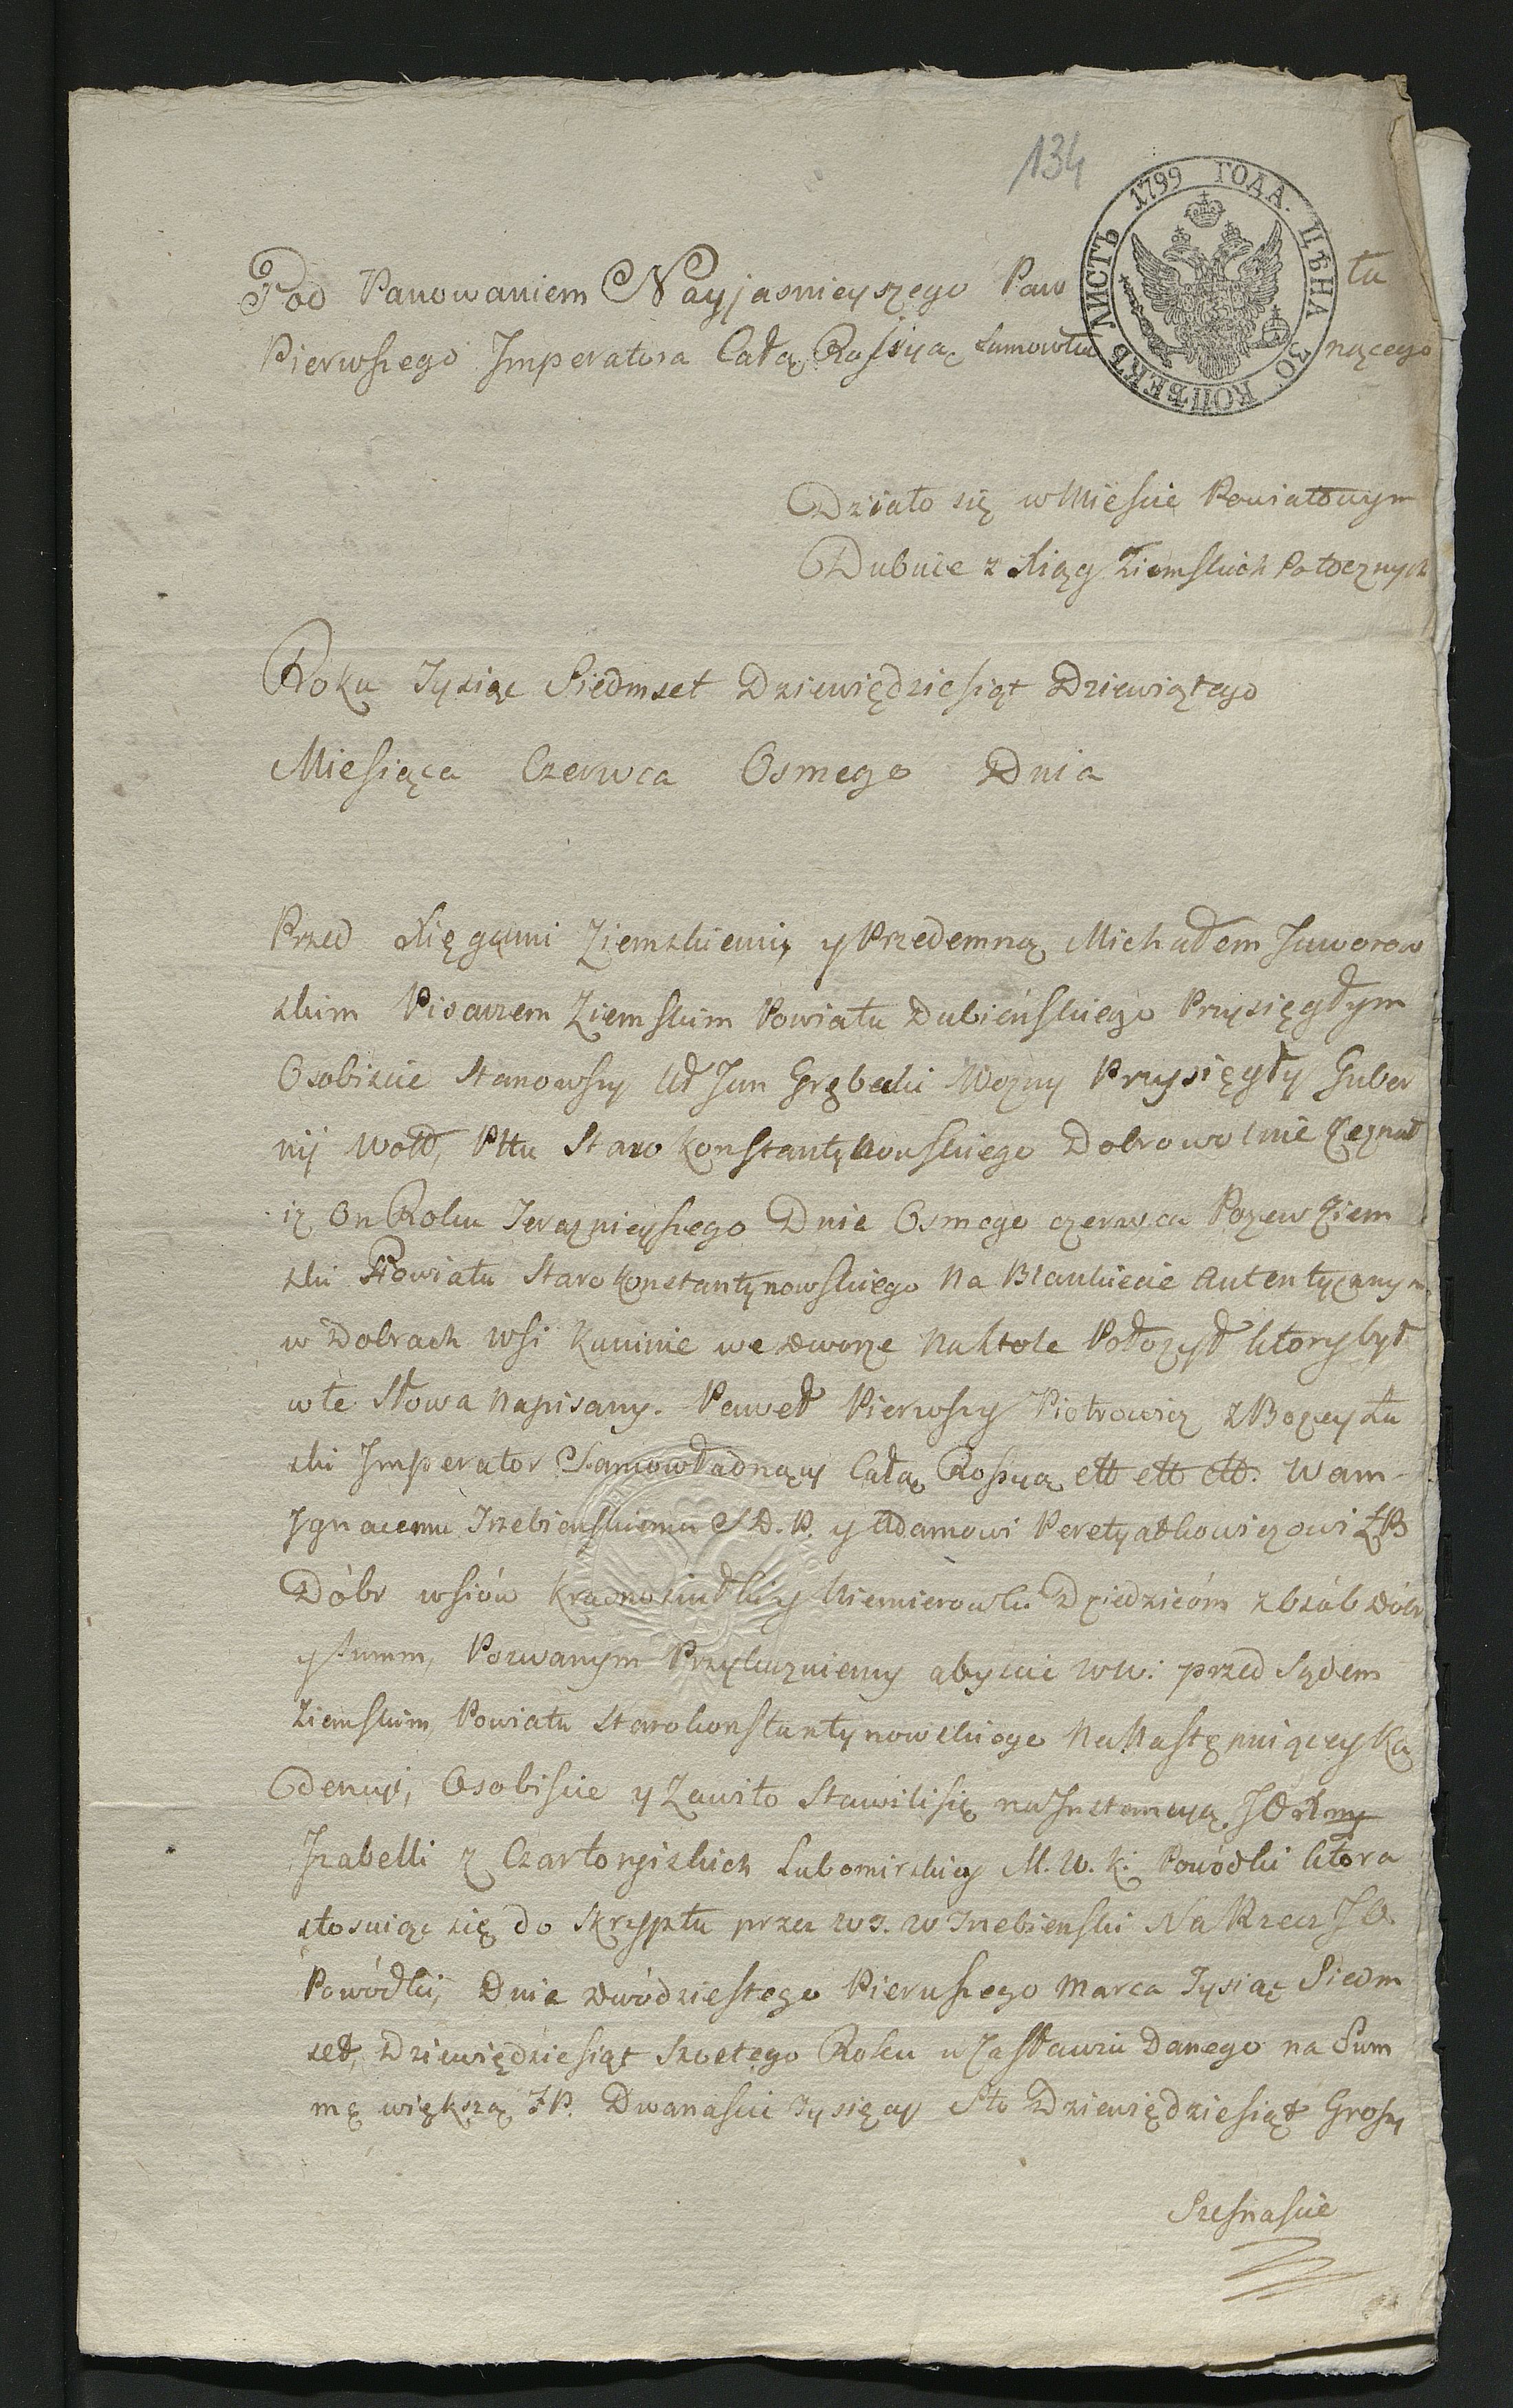 134
ЛИСТЪ 1799 ГОДА. ЦѢНА 30 КОПѢЕКЪ
Pod Panowaniem Nayjasnieyszego Paw ła
Pierwszego Imperatora Całą Rossyią Samowła nącego
Działo się w Mieście Powiatowym
Dubnie z Xiąg Ziemskich Potocznych
Roku Tysiąc Siedmset Dziewiędziesiąt Dziewiątego
Miesiąca Czerwca Osmego Dnia
Przed Xięgami Ziemskiemi, y Przedemną Michałem Jaworow
skim Pisarzem Ziemskim Powiatu Dubieńskiego Przysięgłym
Osobiscie Stanowszy Jan Grębecki Wozny Przysięgły Guber
nij Woł, Pttu Staro Konstantynowskiego Dobrowolnie Zeznał
iż On Roku Teraznieyszego Dnia Osmego czerwca Pozew Ziem
ski Powiatu Staro Konstantynowskiego Na Blankiecie Autentycznym
w Dobrach wsi Kuninie we dworze Na stole Położył ktory był
w te Słowa Napisany. Paweł Pierwszy Piotrowicz z Bożey Ła
ski Imperator Samowładnący Całą Rossyą ett ett ett. Wam
Ignacemu Trzebienskiemu S D. P. y Adamowi Peretyatkowiczowi Ł B
Dóbr wsiów y Niemierowki Dziedzicóm z Osób dóbr
y Summ, Pozwanym Przykazuiemy abyscie WW: przed Sądem
Ziemskim Powiatu Starokonstantynowskiego Na Następuiącey Ka
dencyi, Osobiscie y Zawito Stawili się na Instancyą J O
Izabelli z Czartoryiskich Lubomirskiey M. W. K. Powódki ktora
stosuiąc się do Skryptu przez W J. W Trzebienski Na Rzecz J O
Powódki, Dnia dwódziestego Pierwszego Marca Tysiąc Siedm
set, Dziewiędziesiąt Szostego Roku w Zasławiu Danego na Sum
mę większą Z P. Dwanascie Tysięcy Sto Dziewiędziesiąt Groszy
Szesnascie